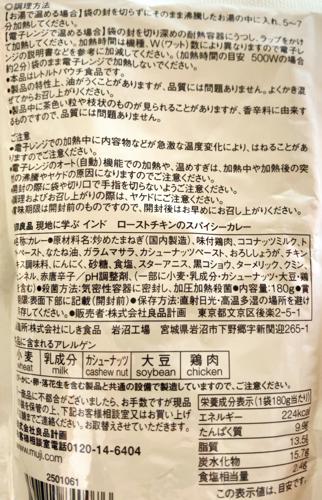 ○調理方法
【お湯で温める場合】袋の封を切らずにそのまま沸騰したお湯の中に入れ、5〜7
分加熱してください。
【電子レンジで温める場合】袋の封を切り深めの耐熱容器にうつし、ラップをかけ
て加熱してください。加熱時間は機種、W(ワット)数により異なりますので電子レ
ンジの説明書などを参考に加減してください。(加熱時間の目安 500Wの場合
約2分)袋のまま電子レンジで加熱しないでください。
●本品はレトルトパウチ食品です。
●製品の特性上、油がうくことがありますが、品質には問題ありません。よくかき混
ぜてからお召し上がりください。
●製品中に茶色い粒や枝状のものが見られることがありますが、香辛料に由来す
るものですので、品質には問題ありません。
ご注意
●電子レンジでの加熱中に内容物などが急激な温度変化により、はねることがあ
りますのでご注意ください。
電子レンジのオート(自動)機能での加熱や、温めすぎは、加熱中や加熱後の突
の沸騰やヤケドの原因になりますのでご注意ください。
開封の際に袋や切り口で手指を切らないようご注意ください。
調理およびお召し上がりの際は、ヤケドにご注意ください。
賞味期限は開封前のものですので、開封後はお早めにお召し上がりください。
良品 現地に学ぶ インド ローストチキンのスパイシーカレー
称:カレー●原材料名:炒めたまねぎ(国内製造)、味付鶏肉、ココナッツミルク、ト
ペースト、なたね油、ガラムマサラ、カシューナッツペースト、おろししょうが、チキン
キス調味料、にんにく、砂糖、食塩、スターアニス、黒こしょう、ターメリック、クミン、
ンネル、赤唐辛子/pH調整剤、(一部に小麦・乳成分・カシューナッツ・大豆・鶏
含む)●殺菌方法:気密性容器に密封し、加圧加熱殺菌●内容量:180g●賞
限:表面下部に記載(開封前)●保存方法:直射日光・高温多湿の場所を避け
存してください。●販売者:株式会社良品計画 東京都文京区後楽2-5-1
場所:株式会社にしき食品 岩沼工場 宮城県岩沼市下野郷字新関迎265-1
品に含まれるアレルゲン
小麦 乳成分 カシューナッツ 大豆 鶏肉
wheat milk cashew nut soybean chicken
・かに・卵・落花生を含む製品と共通の設備で製造していますので、ご注意ください。
一商品に不都合がございましたら、お手数ですが現品
保管の上、下記お客様相談室又はお買い上げ
までご連絡ください。お取替えさせていただきます。
式会社良品計画
客様相談室 0120-14-6404
www.muji.com
2501061
栄養成分表示(1袋180g当たり)
エネルギー 224kcal
たんぱく質 9.9
脂質 13.5
炭水化物 15.7g
食塩相当量 2.4
この表示値は、目安です。